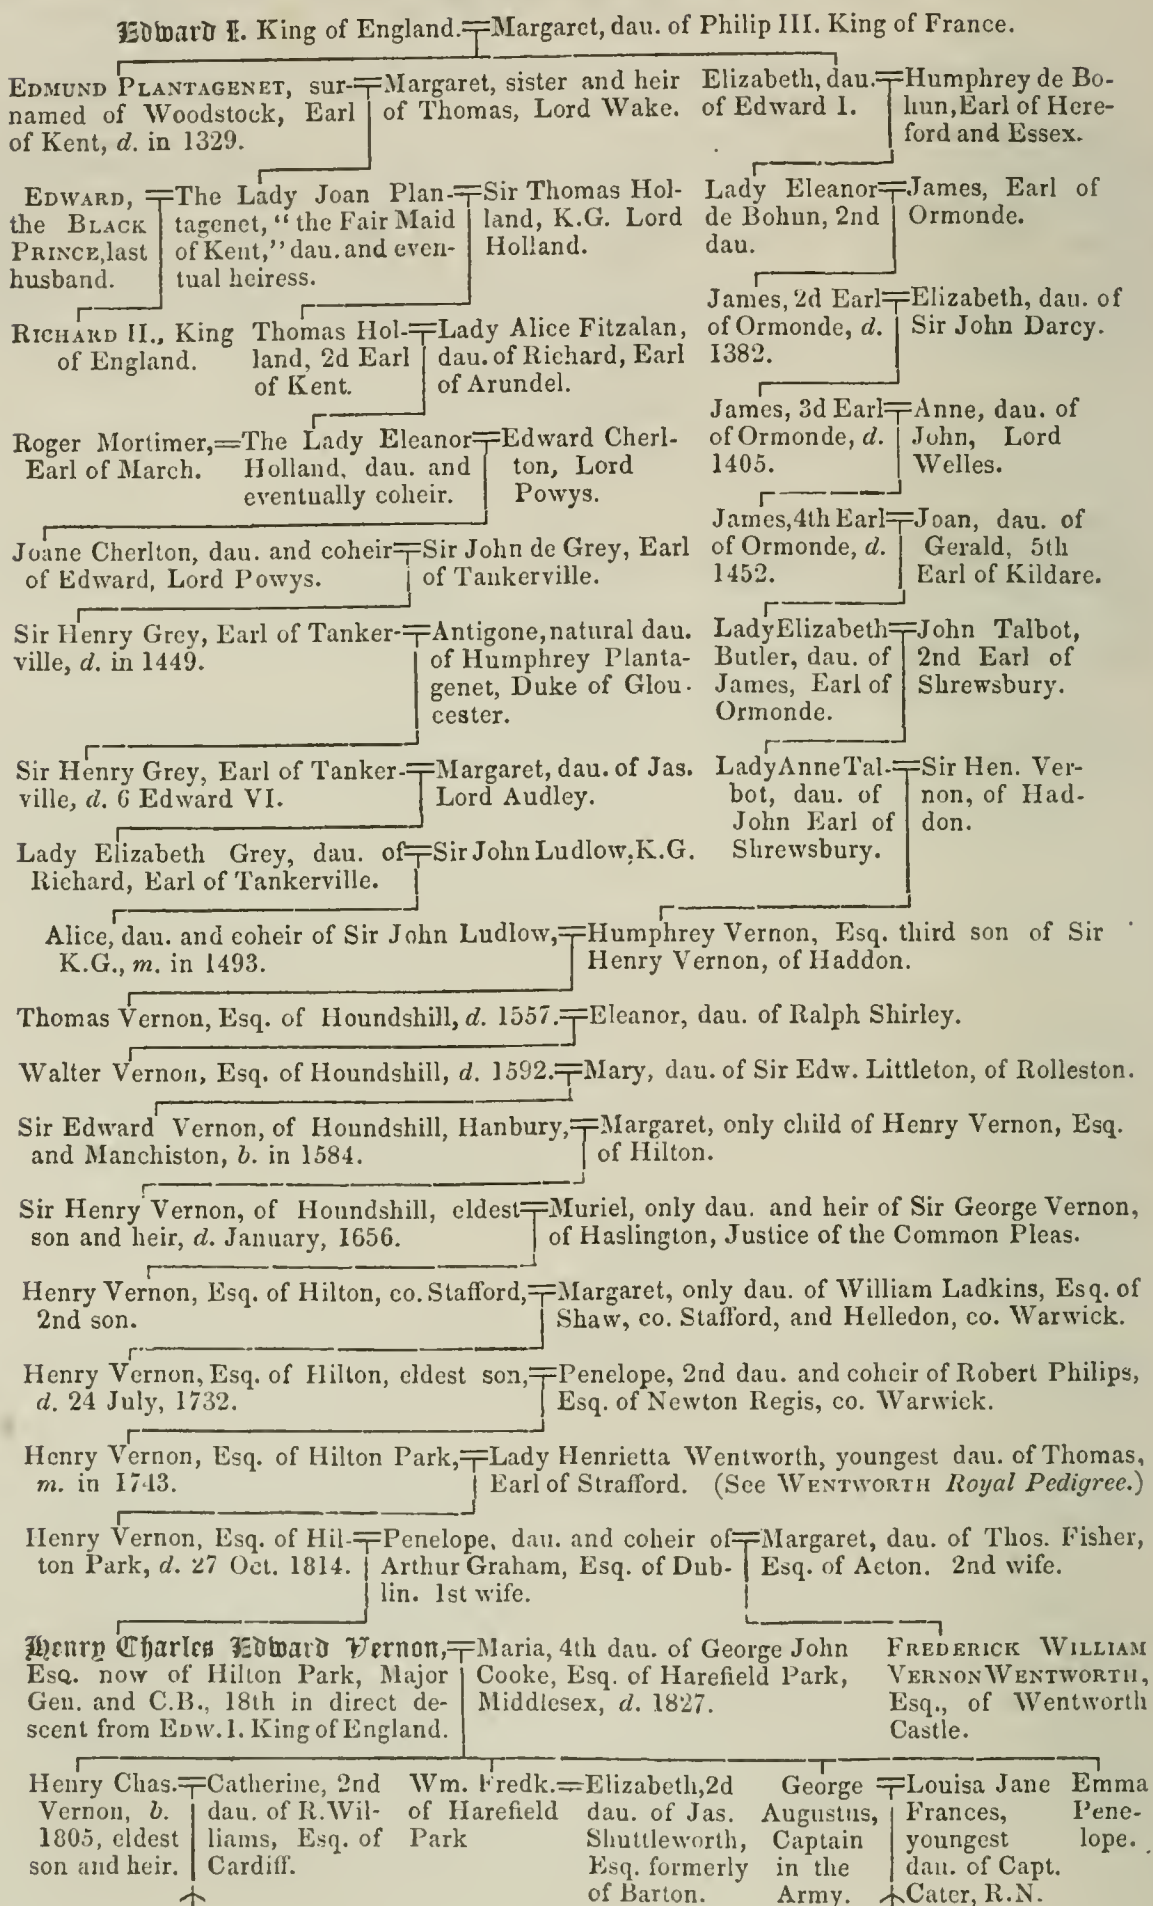 Edward I. King of England.=Margaret, dau. of Philip III. King of France.
EDMUND PLANTAGENET, sur-
named of Woodstock, Earl
of Kent, d. in 1329.
=Margaret, sister and heir
of Thomas, Lord Wake.
Elizabeth, dau.
of Edward I.
=Humphrey de Bo-
hun, Earl of Here-
ford and Essex.
EDWARD,
the BLACK
PRINCE, last
husband.
=The Lady Joan Plan-
tagenet, "the Fair Maid
of Kent," dau. and even-
tual heiress.
=Sir Thomas Hol-
land, K.G. Lord
Holland.
Lady Eleanor
de Bohun, 2nd
dau.
=James, Earl of
Ormonde.
RICHARD II., King
of England.
Thomas Hol-
land, 2d Earl
of Kent.
=Lady Alice Fitzalan,
dau. of Richard, Earl
of Arundel.
James, 2d Earl
of Ormonde, d.
1382.
=Elizabeth, dau. of
Sir John Darcy.
Roger Mortimer,
Earl of March.
=The Lady Eleanor
Holland, dau. and
eventually coheir.
=Edward Cherl-
ton, Lord
Powys.
James, 3d Earl
of Ormonde, d.
1405.
=Anne, dau. of
John, Lord
Welles.
Joane Cherlton, dau. and coheir
of Edward, Lord Powys.
=Sir John de Grey, Earl
of Tankerville.
James, 4th Earl
of Ormonde, d.
1452.
=Joan, dau. of
Gerald, 5th
Earl of Kildare.
Sir Henry Grey, Earl of Tanker-
ville, d. in 1449.
=Antigone, natural dau.
of Humphrey Planta-
genet, Duke of Glou-
cester.
Lady Elizabeth
Butler, dau. of
James, Earl of
Ormonde.
=John Talbot,
2nd Earl of
Shrewsbury.
Sir Henry Grey, Earl of Tanker-
ville, d. 6 Edward VI.
=Margaret, dau. of Jas.
Lord Audley.
Lady Anne Tal-
bot, dau. of
John Earl of
Shrewsbury.
=Sir Hen. Ver-
non, of Had-
don.
Lady Elizabeth Grey, dau. of
Richard, Earl of Tankerville.
=Sir John Ludlow, K.G.
Alice, dau. and coheir of Sir John Ludlow,
K.G., m. in 1493.
=Humphrey Vernon, Esq. third son of Sir
Henry Vernon, of Haddon.
Thomas Vernon, Esq. of Houndshill, d. 1557.=Eleanor, dau. of Ralph Shirley.
Walter Vernon, Esq. of Houndshill, d. 1592.=Mary, dau. of Sir Edw. Littleton, of Rolleston.
Sir Edward Vernon, of Houndshill, Hanbury,
and Manchiston, b. in 1584.
=Margaret, only child of Henry Vernon, Esq.
of Hilton.
Sir Henry Vernon, of Houndshill, eldest
son and heir, d. January, 1656.
=Muriel, only dau. and heir of Sir George Vernon,
of Haslington, Justice of the Common Pleas.
Henry Vernon, Esq. of Hilton, co. Stafford,
2nd son.
=Margaret, only dau. of William Ladkins, Esq. of
Shaw, co. Stafford, and Helledon, co. Warwick.
Henry Vernon, Esq. of Hilton, eldest son,
d. 24 July, 1732.
=Penelope, 2nd dau. and coheir of Robert Philips,
Esq. of Newton Regis, co. Warwick.
Henry Vernon, Esq. of Hilton Park,
m. in 1743.
=Lady Henrietta Wentworth, youngest dau. of Thomas,
Earl of Strafford. (See WENTWORTH Royal Pedigree.)
Henry Vernon, Esq. of Hil-
ton Park, d. 27 Oct. 1814.
=Penelope, dau. and coheir of
Arthur Graham, Esq. of Dub-
lin. 1st wife.
=Margaret, dau. of Thos. Fisher,
Esq. of Acton. 2nd wife.
Henry Charles Edward Vernon,
Esq. now of Hilton Park, Major
Gen. and C.B., 18th in direct de-
scent from EDW. I. King of England.
=Maria, 4th dau. of George John
Cooke, Esq. of Harefield Park,
Middlesex, d. 1827.
FREDERICK WILLIAM
VERNON WENTWORTH,
Esq., of Wentworth
Castle.
Henry Chas.
Vernon, b.
1805, eldest
son and heir.
=Catherine, 2nd
dau. of R. Wil-
liams, Esq. of
Cardiff.
Wm. Fredk.
of Harefield
Park
=Elizabeth, 2d
dau. of Jas.
Shuttleworth,
Esq. formerly
of Barton.
George
Augustus,
Captain
in the
Army.
=Louisa Jane
Frances,
youngest
dau. of Capt.
Cater, R.N.
Emma
Pene-
lope.